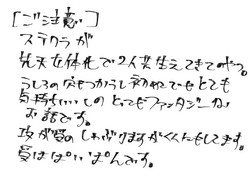 [ご注意]
ステクラが
先天女体化で2人共生えてきてのやつ。
うしろの穴もつかうし初めてでもとても
気持ちいいしの とってもファンタジーな
お話です。
攻が受のしゃぶりますがくんにもします。
受はぱいぱんです。